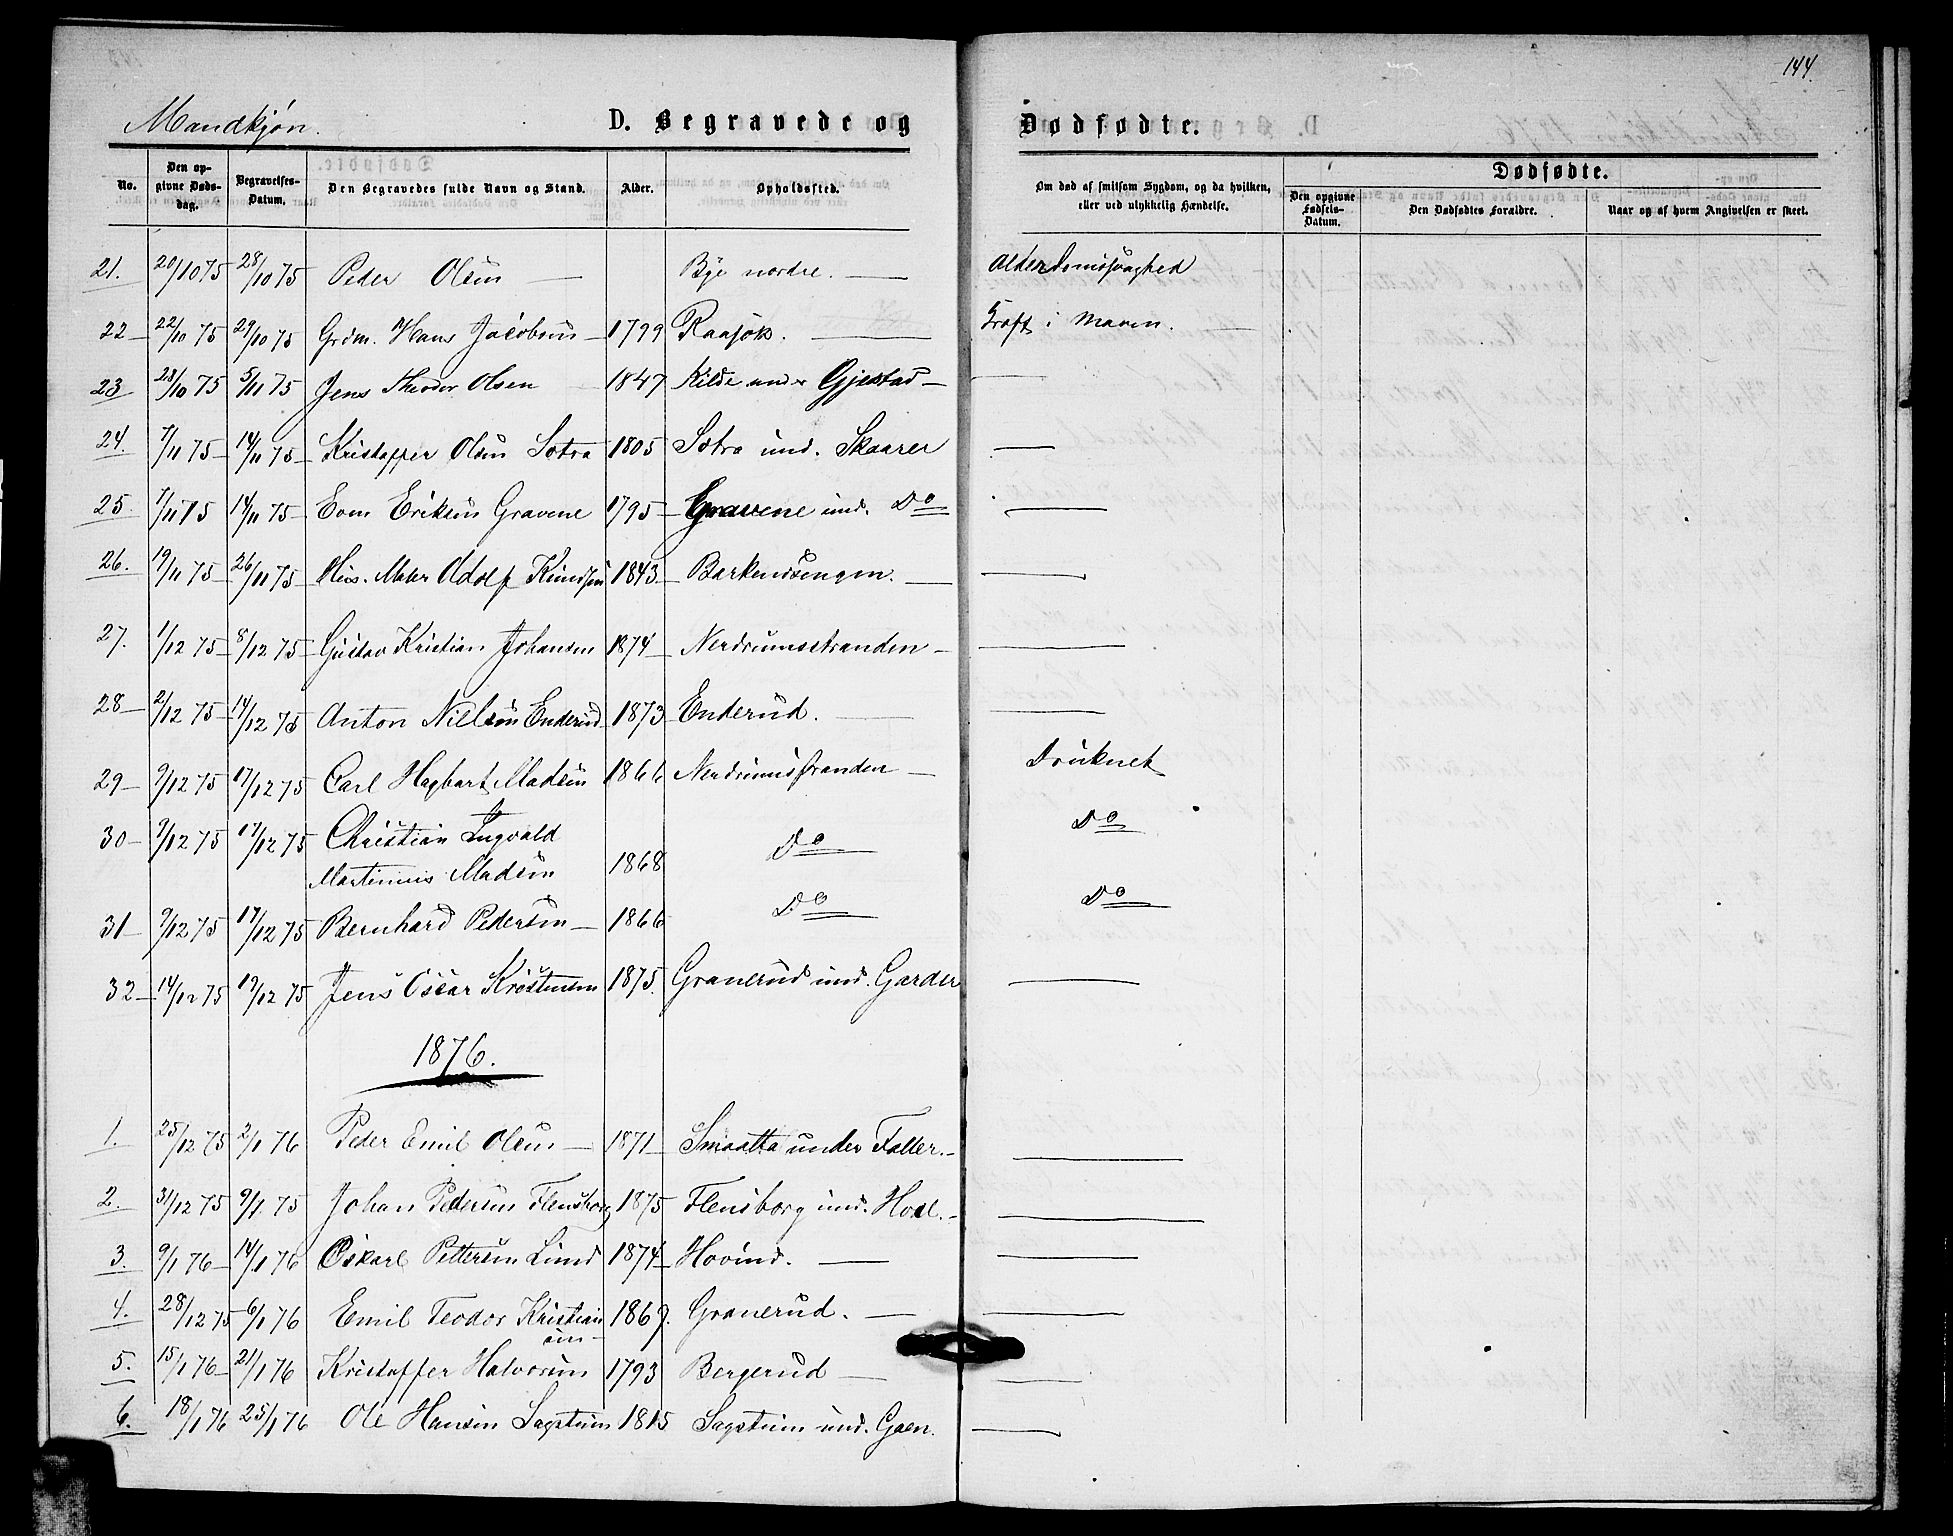 144.
Mandkjøn.
D. Begravede og Dødfødte.
No.
Den opgivne Døds-dag.
Begravelses-Datum.
Den Begravedes fulde Navn og Stand.
Alder.
Opholdssted.
Om død af smitsom Sygdom, og da hvilken, eller ved ulykkelig Hændelse.
Dødfødte.
Den opgivne Fødsels-Datum.
Den Dødfødtes Forældre.
Naar og af hvem Angivelsen er skeet.
21. 20/10 75 28/10 75 Peder Olsen — Bye nordre. — Alderdomssvaghed
22 — 22/10 75 29/10 75 Grdm. Hans Jacobsen — 1799 Raasjok. — Kræft i Maven. —
23 28/10 75 5/11 75 Jens Theodor Olsen — 1847 Kilde under Gjestad — —
24. 7/11 75 — 14/11 75 — Kristoffer Olsen Sotra 1805 Sotra und. Skaarer —
25. 7/11 75 14/11 75 — Even Eriksen Gravene 1795 — Gravene und. Do —
26. 19/11 75 — 26/11 75 — Hus. Maler Adolf Knudsen 1843 — — —
27. 1/12 75 — 8/12 75 — Gustav Kristian Johansen 1874 — Nerdrumsstranden — —
28 — 2/12 75 — 14/12 75 Anton Nielsen Enderud 1873 — Enderud. — —
29 — 9/12 75 17/12 75 Carl Hagbart Madsen 1866 Nerdrumsstranden — Druknet
30 — 9/12 75 17/12 75 Christian Ingvald
Martinius Madsen 1868 Do Do
31 — 9/12 75 17/12 75 Bernhard Pedersen — 1866 Do Do
32 — 14/12 75 19/12 75 Jens Oscar Kristensen 1875. Granerud und. Garder —
1876.
1. 25/12 75 2/1 76 Peder Emil Olsen — 1871 — Smaatta under Faller. — —
2. 31/12 75 9/1 75 Johan Pedersen Flensborg 1875 Flensborg und. Hoel. — —
3. 9/1 76 — 14/1 76 Oskarl Pettersen Lund 1874 Hovind. — —
4. 28/12 75 — 6/1 76 Emil Teodor Kristian
sen — 1869. Granerud. — —
5. 15/1 76 — 21/1 76 Kristoffer Halvorsen 1793 Bergerud — —
6. 18/1 76 25/1 76 Ole Hansen Sagstuen 1815 Sagstuen und. Gaen. —